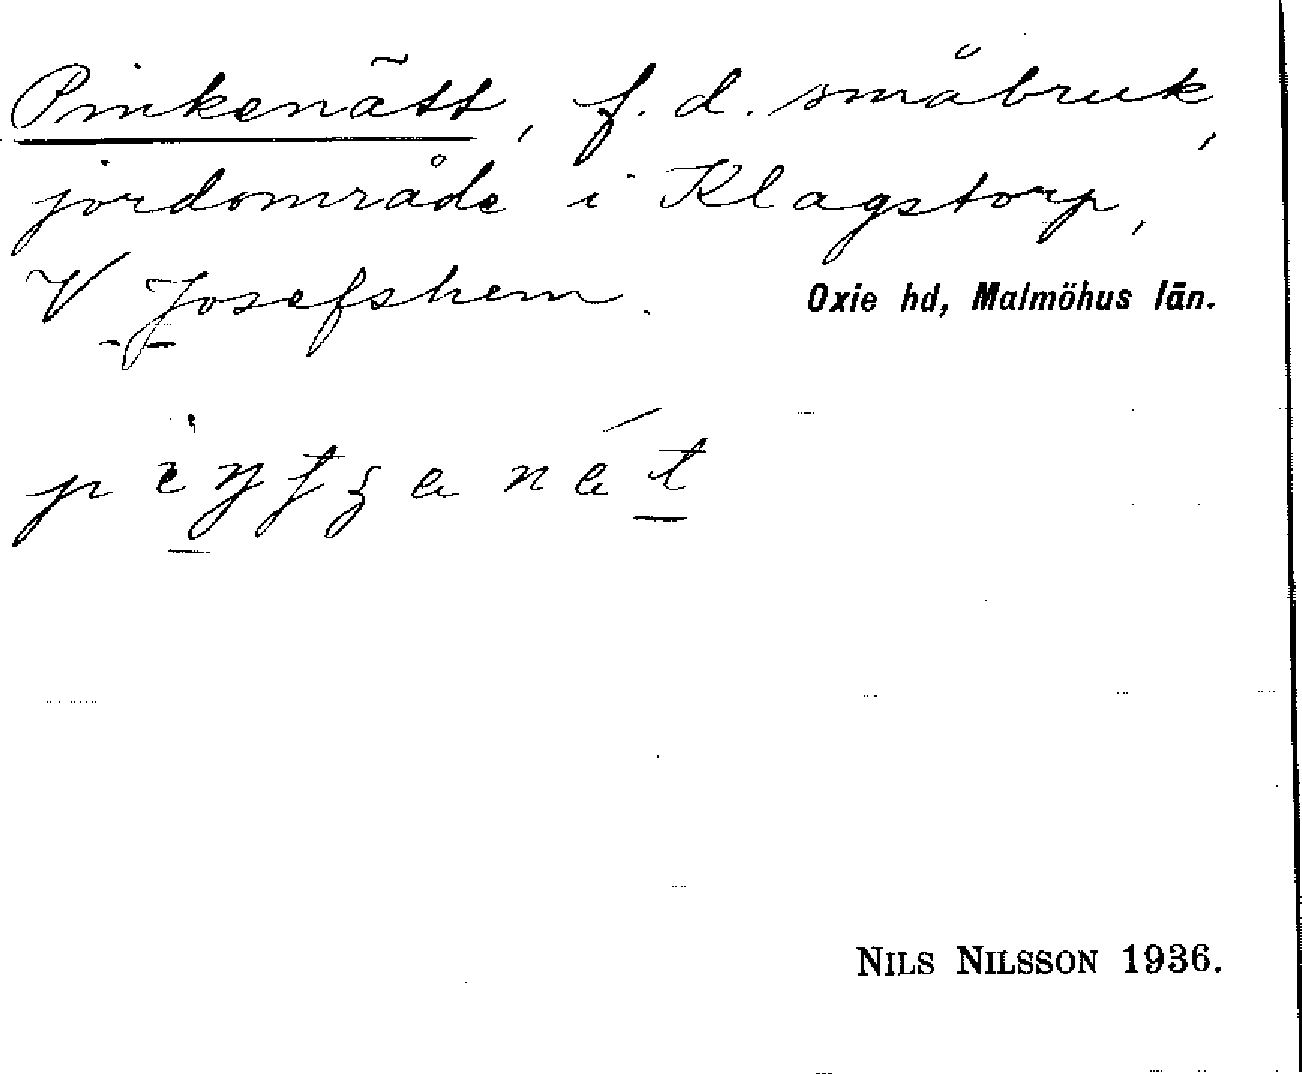 Pinkenätt, f. d. småbruk,
jordområde i Klagstorp,
V Josefshem.
Oxie hd, Malmöhus län.
NILS NILSSON 1936.